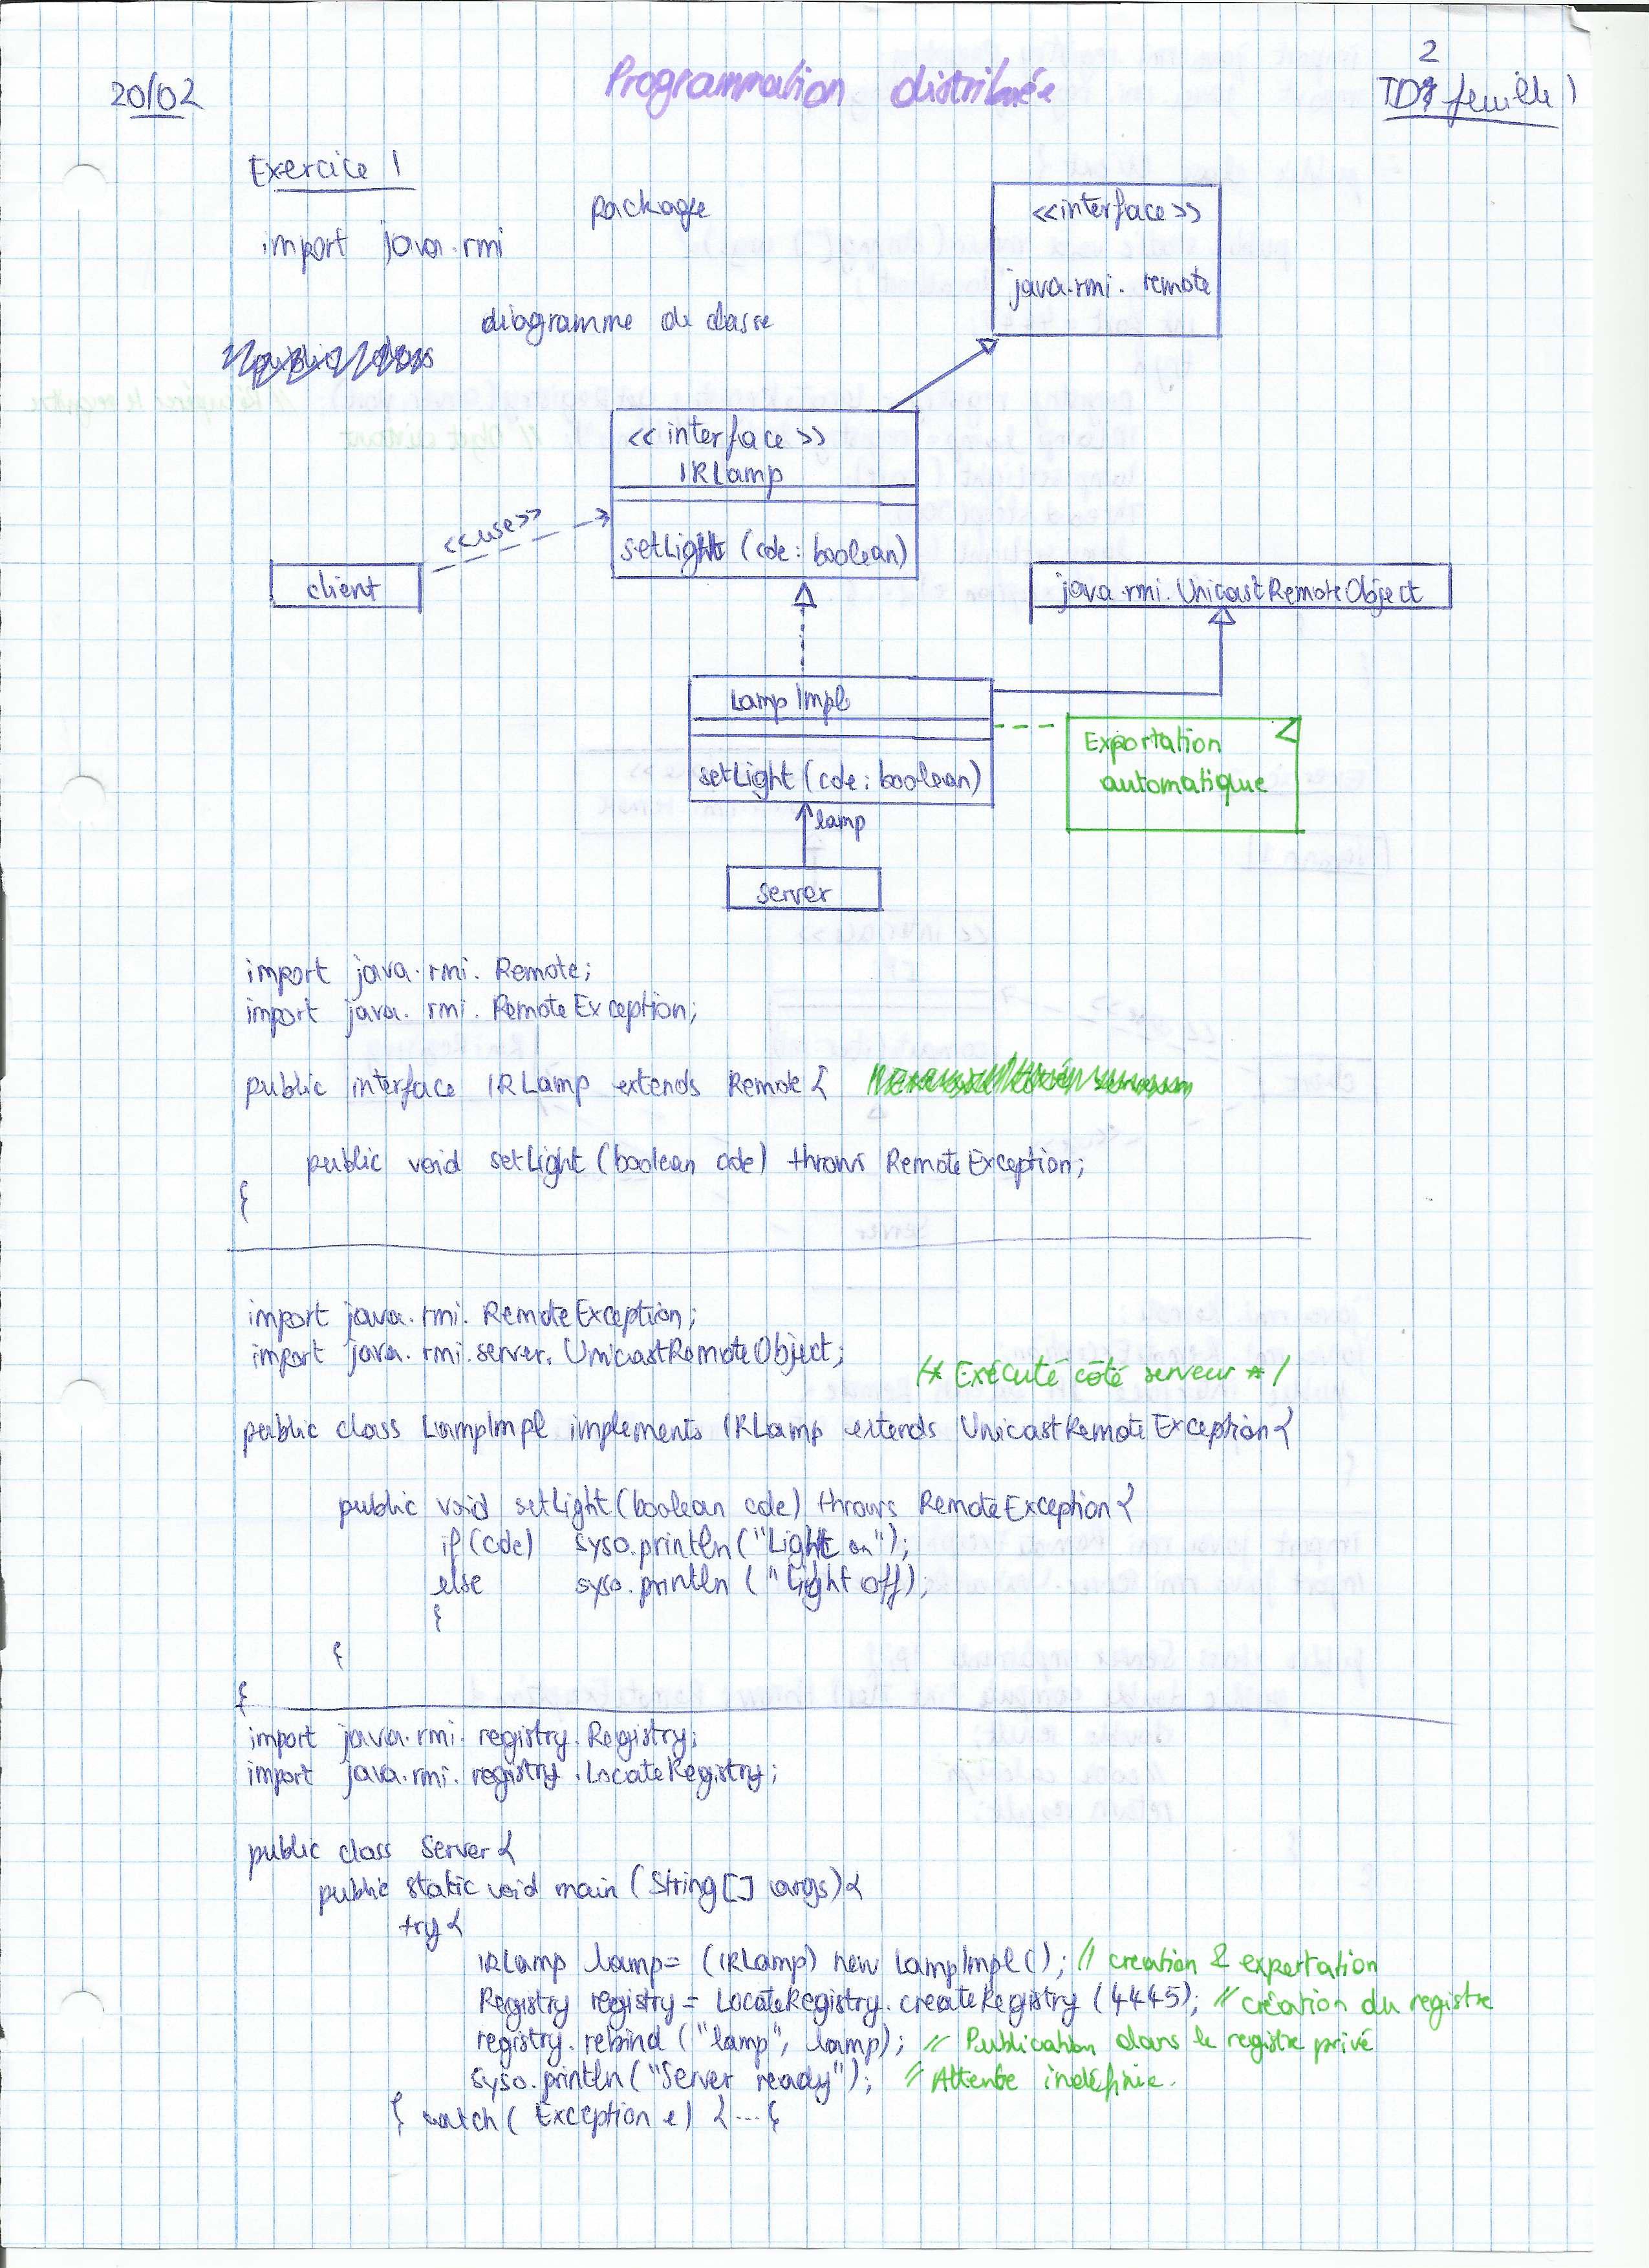 20/02
Programmation distribuée
2
TD feuille 1
Exercice 1
package
import java.rmi
diagramme de classe
<<interface>>
java.rmi. remote
<< interface >>
IRLamp
setLight (code: boolean)
<<use>>
client
java.rmi.UnicastRemoteObject
LampImpl
setLight (code: boolean)
Exportation
automatique
lamp
server
import java.rmi. Remote;
import java. rmi. RemoteException;
public interface IRLamp extends Remote {
public void setLight (boolean code) throws RemoteException;
}
import java.rmi. RemoteException;
import java. rmi.server. UnicastRemoteObject;
/* Exécuté côté serveur */
public class LampImpl implements IRLamp extends UnicastRemoteException {
public void setLight (boolean code) throws RemoteException {
if (code) syso.println("Light on");
else syso.println ("Light off);
}
}
}
import java.rmi. registry.Registry;
import java.rmi. registry.LocateRegistry;
public class Server {
public static void main (String[] args) {
try {
IRLamp lamp= (IRLamp) new LampImpl(); // creation & exportation
Registry registry = LocateRegistry.createRegistry (4445); // création du registre
registry.rebind ("lamp", lamp); // Publication dans le registre privé
syso.println("Server ready"); // Attente indéfinie.
} catch ( Exception e) {...}